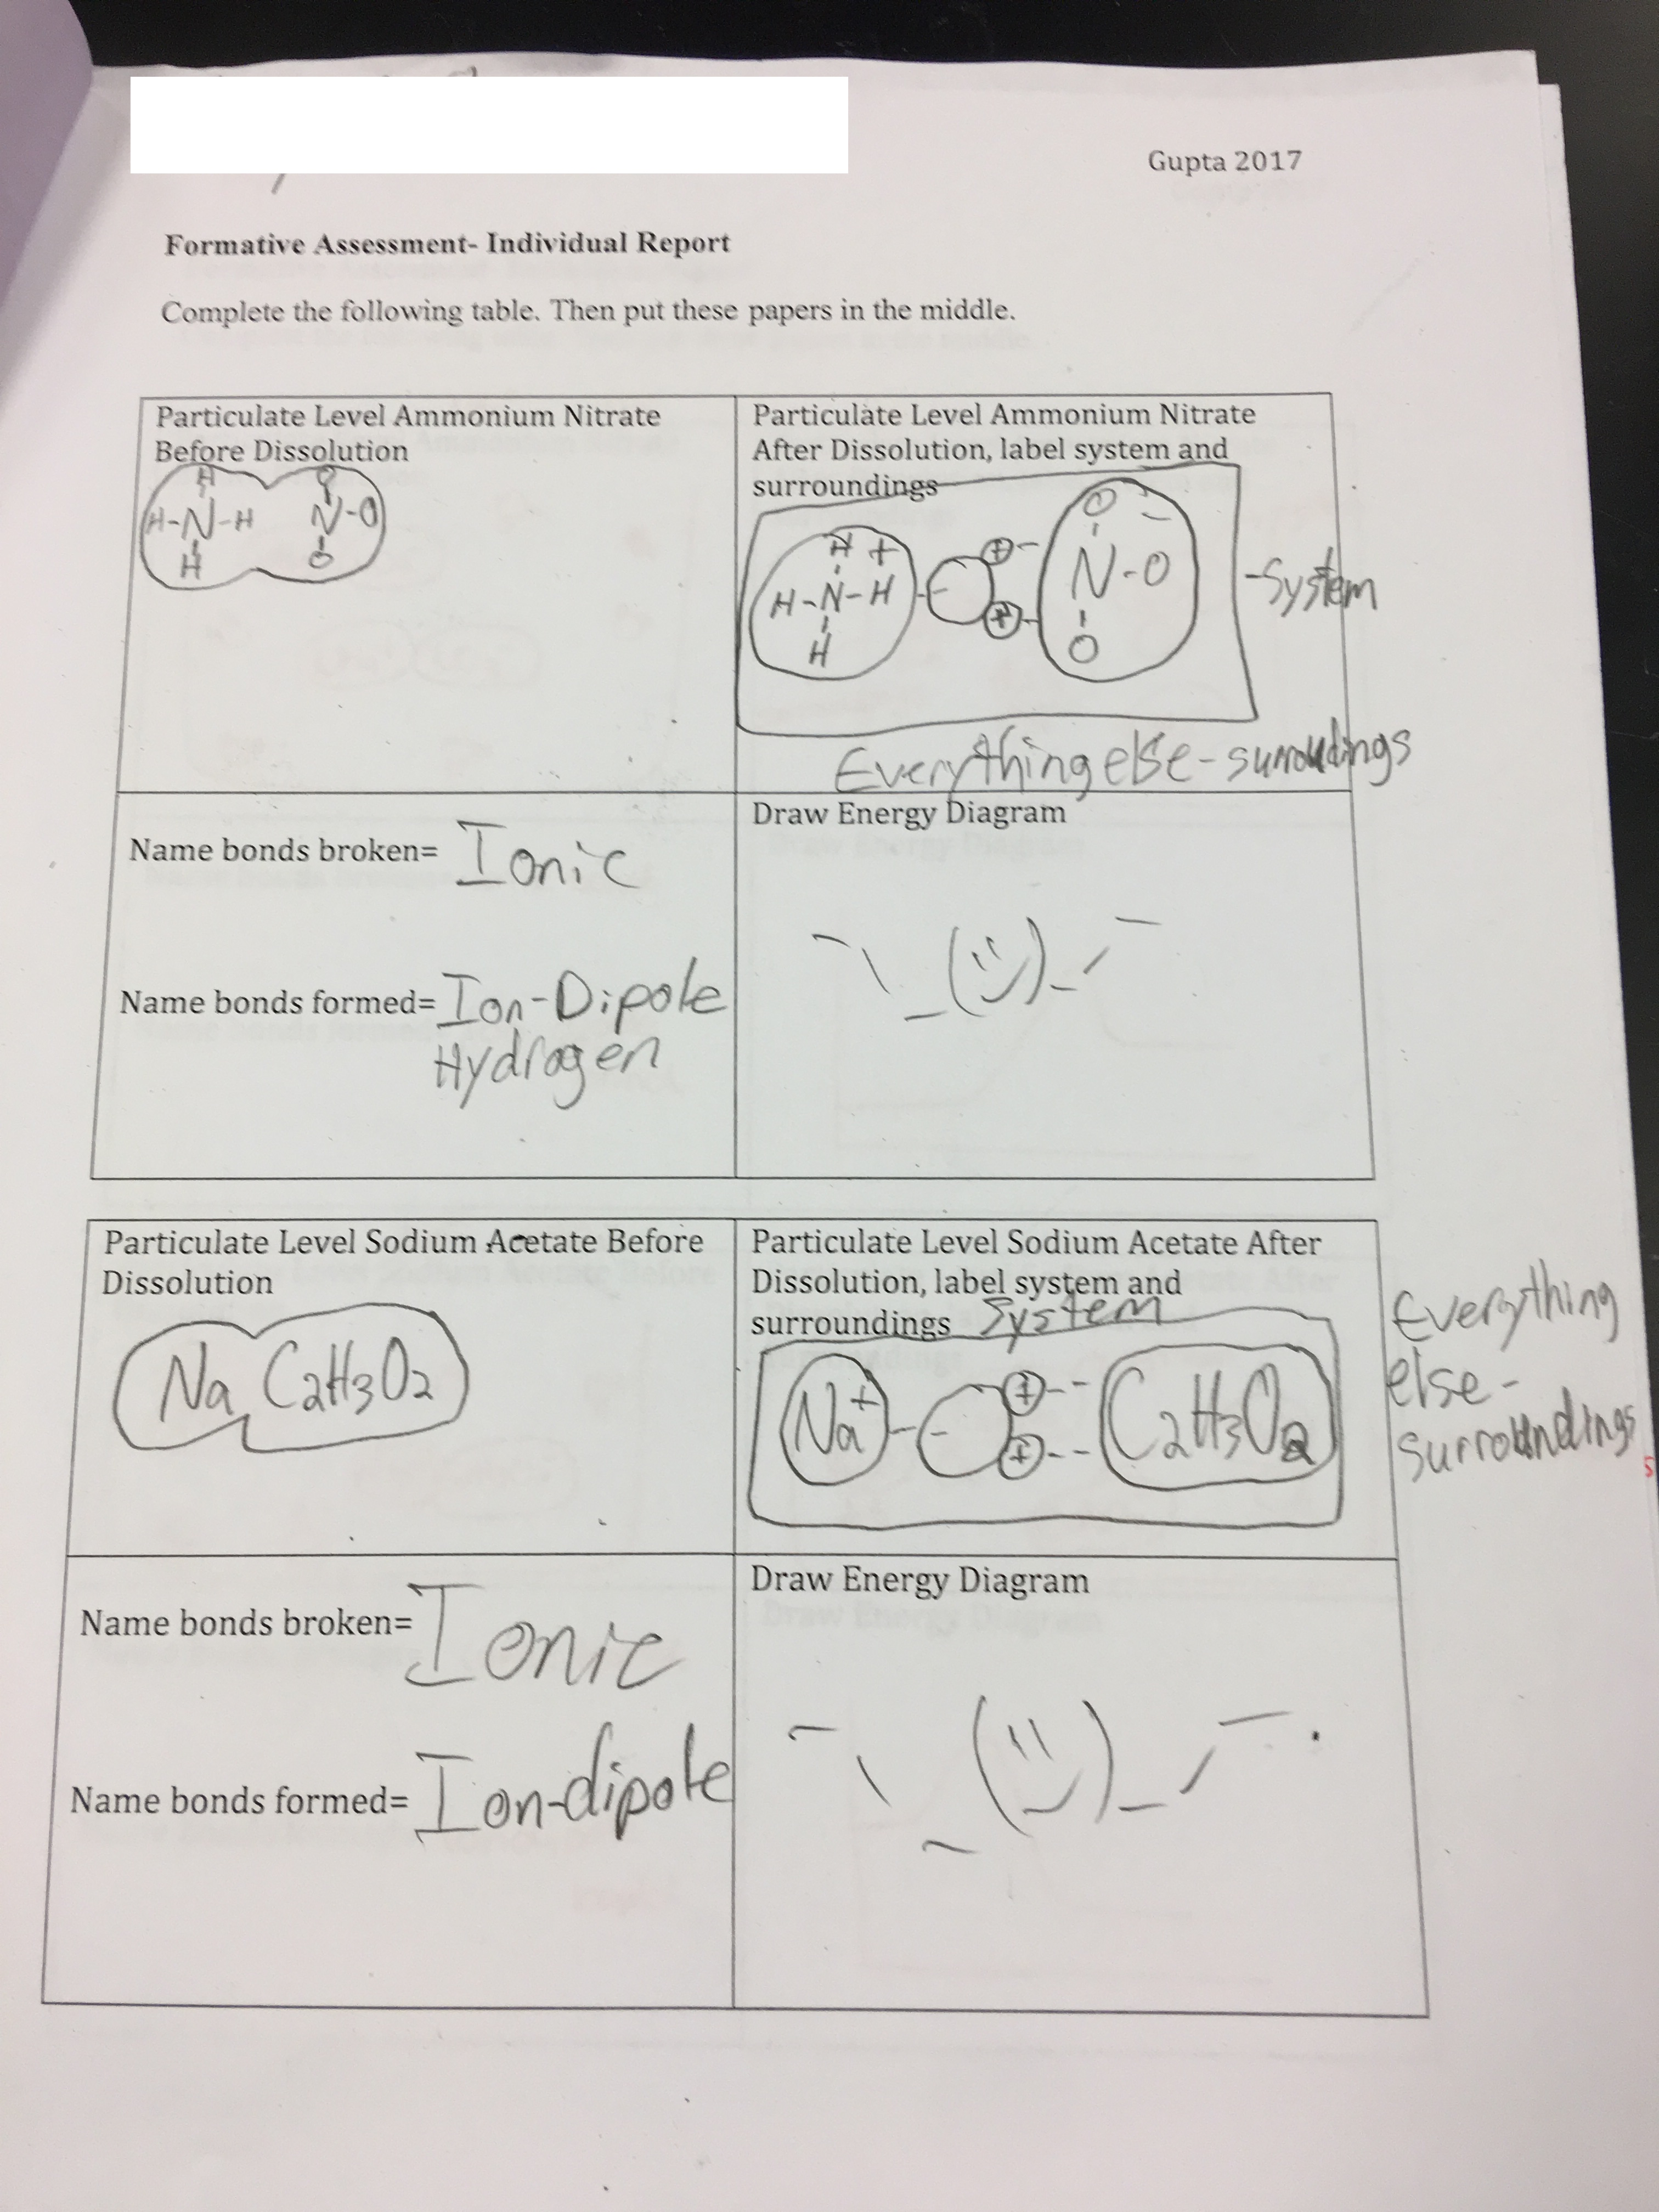 Gupta 2017
Formative Assessment- Individual Report
Complete the following table. Then put these papers in the middle.
Particulate Level Ammonium Nitrate
Before Dissolution
H O
H-N-H N-O
H O
Particulate Level Ammonium Nitrate
After Dissolution, label system and
surroundings
H + O -
H-N-H - + + N-O
H O
-System
Everything else-surroundings
Name bonds broken= Ionic
Name bonds formed= Ion-Dipole
Hydrogen
Draw Energy Diagram
Particulate Level Sodium Acetate Before
Dissolution
Na C2H3O2
Particulate Level Sodium Acetate After
Dissolution, label system and
surroundings System
Na+ - + + C2H3O2
Everything
else-
surroundings
Name bonds broken= Ionic
Name bonds formed= Ion-dipole
Draw Energy Diagram